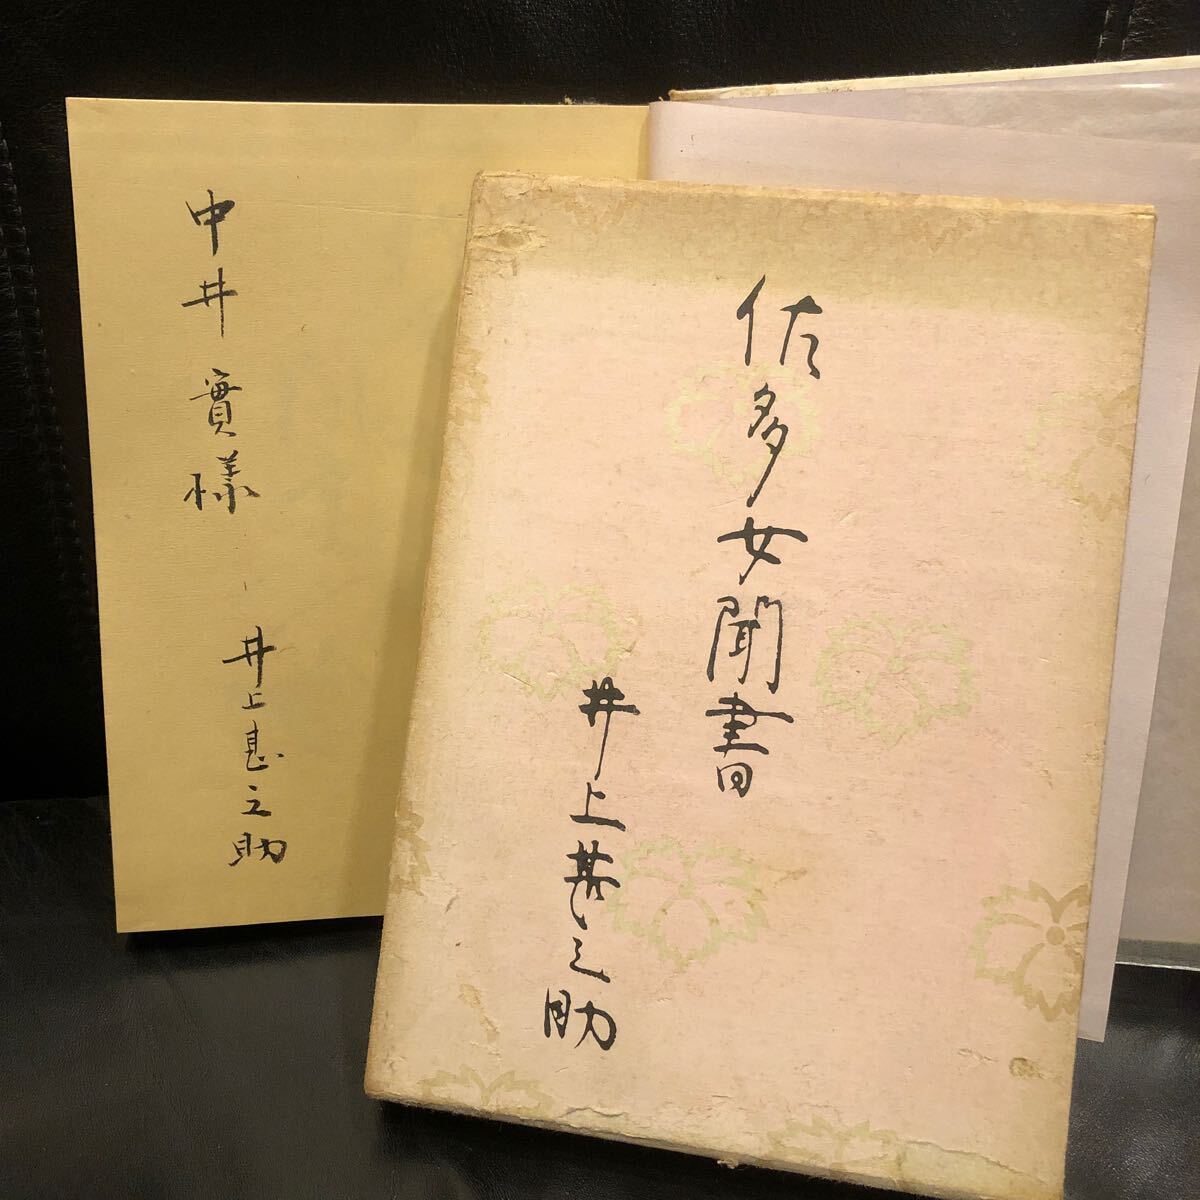 中井實様
井上甚之助
佐多女聞書
井上甚之助